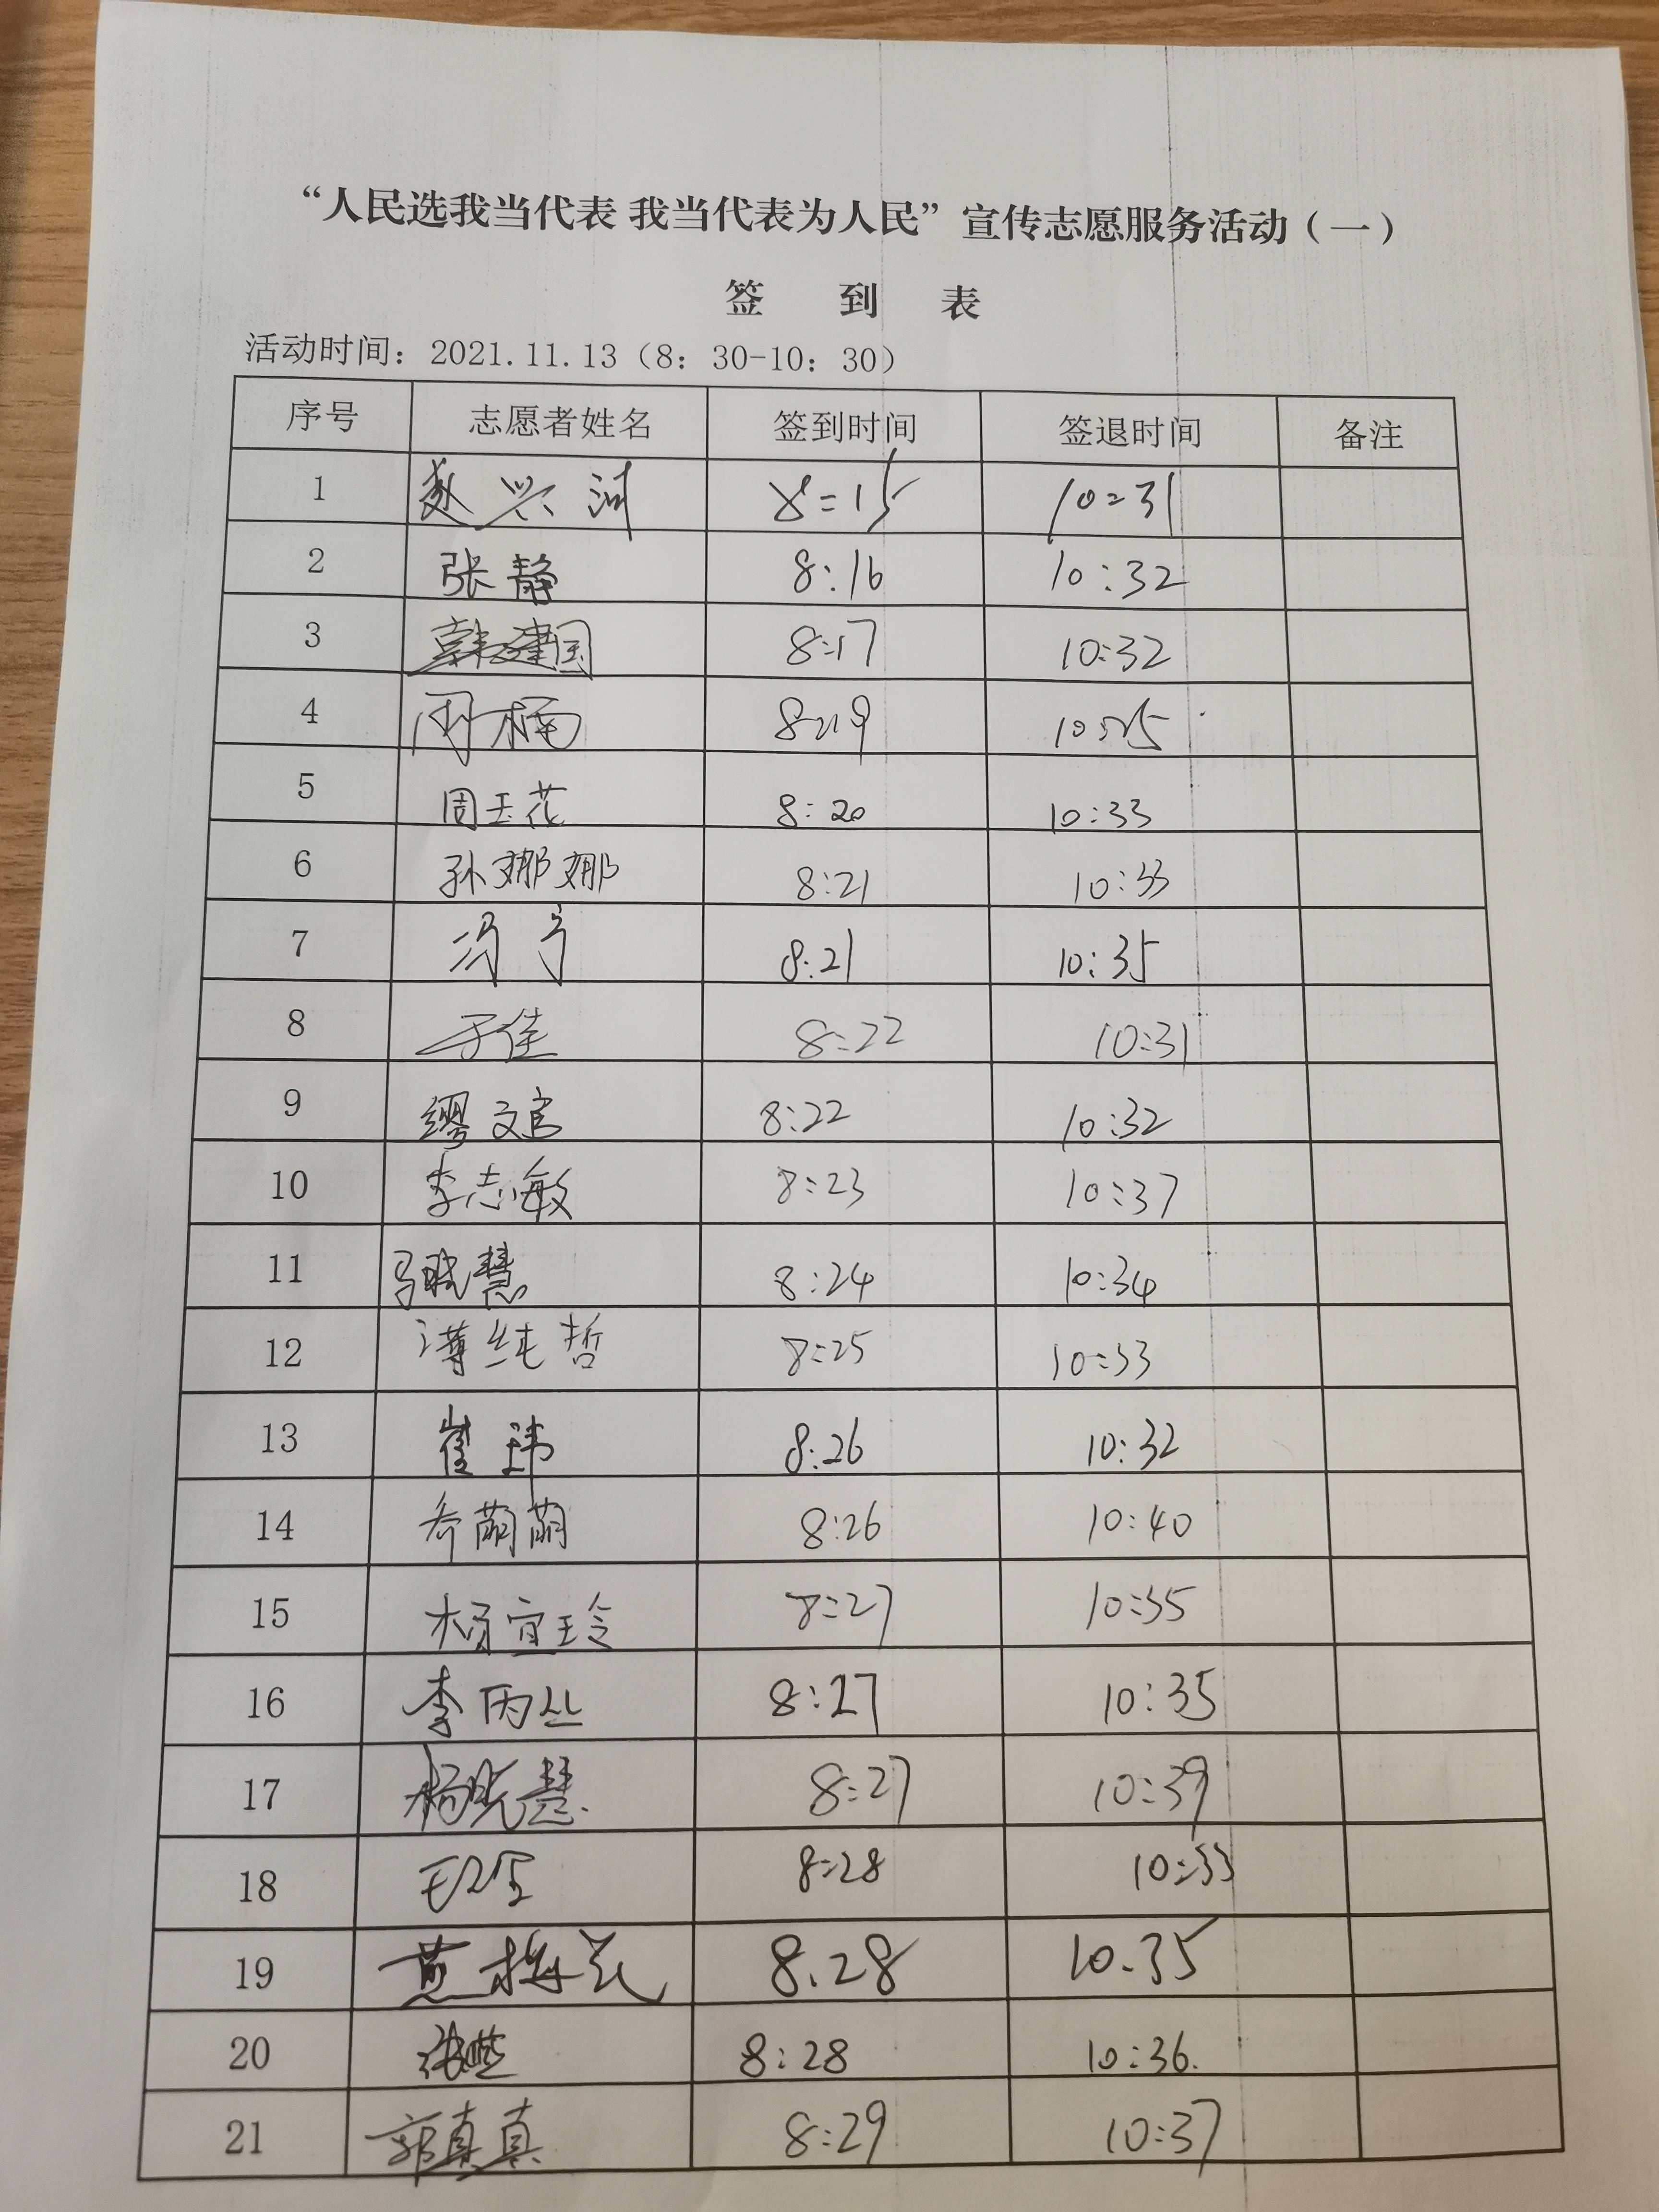 “人民选我当代表 我当代表为人民”宣传志愿服务活动（一）
签 到 表
活动时间：2021.11.13（8：30-10：30）
序号 志愿者姓名 签到时间 签退时间 备注
1 赵兴河 8:15 10:31
2 张静 8:16 10:32
3 韩建国 8:17 10:32
4 周楠 8:19
5 周玉花 8:20 10:33
6 孙娜娜 8:21 10:33
7 冯宁 8:21 10:35
8 于佳 8:22 10:31
9 缪文官 8:22 10:32
10 李志敏 8:23 10:37
11 马晓慧 8:24 10:34
12 纯哲 8:25 10:33
13 崔玮 8:26 10:32
14 乔萌萌 8:26 10:40
15 杨宜玲 8:27 10:35
16 李丙丛 8:27 10:35
17 杨晓慧 8:27 10:39
18 8:28 10:33
19 黄梅花 8.28 10.35
20 张 8:28 10:36.
21 郭真真 8:29 10:37